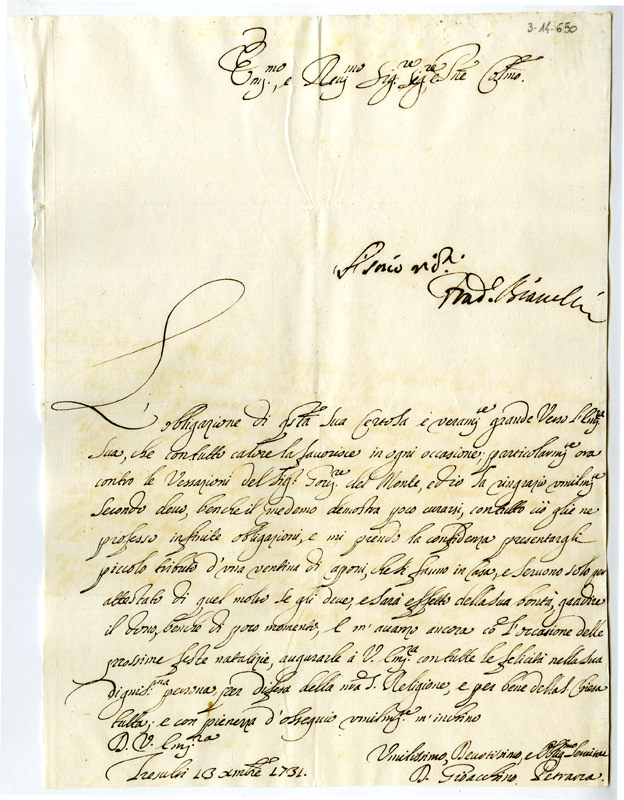 3-14-650
Em.mo, e Reu.mo Sig.re Sig.re e Pne Colmo.
Frad. Bianchi
L'obligazione di qsta sua Certosa è veram.te grande verso l'Em.za
Sua, che con tutto calore la fauorisce in ogni occasione; particolarm.te ora
contro le Vessazioni del Sig.r Gou.re del Monte, ed io la ringrazio vmilm.te
Secondo deuo, benche il medemo demostra poco curarsi, con tutto ciò glie ne
professo infinite obligazioni, e mi prendo la confidenza presentargli
piccolo tributo d'vna ventina di agoni, che si fanno in Casa, e seruono solo per
attestato di quel molto se gli deue, e sarà effetto della sua bontà, gradire
il dono, benche di poco momento, E m'auanzo ancora cõ l'occasione delle
prossime feste natalizie, augurarle à V. Em.za con tutte le felicità nella sua
dignis.ma persona, per difesa della nra S. Religione, e per bene della S. Chiesa
tutta; e con pienezza d'ossequio vmilm.te m'inchino
D. V. Em.za
Trisulti 13 Xmbre 1731.
Vmilissimo, Deuotissimo, e Oblig.mo Seruitore
D. Gioacchino Petrarca.